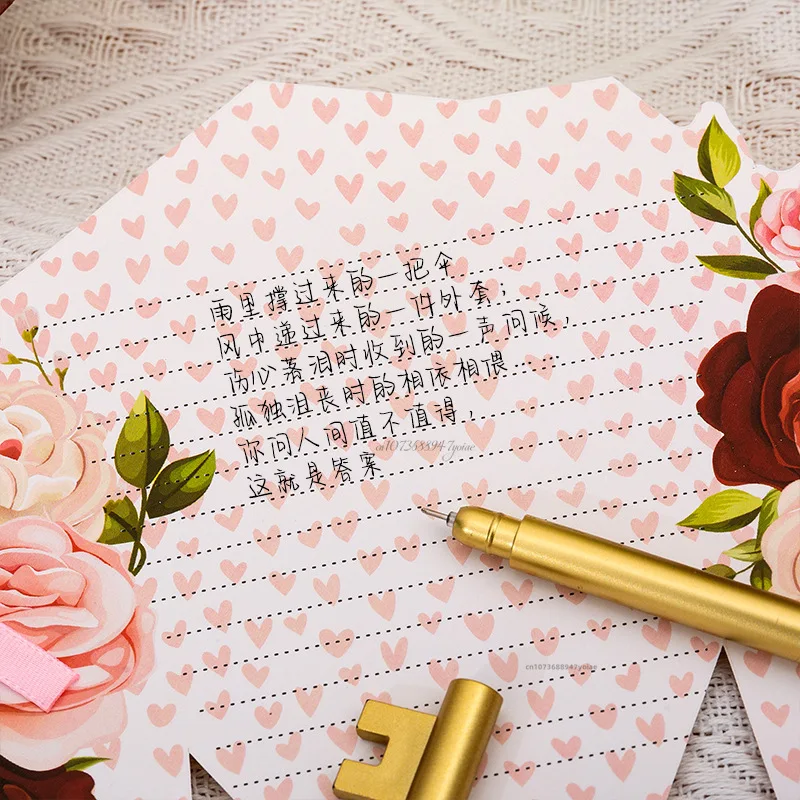 雨里撑过来的一把伞
风中递过来的一件外套，
伤心落泪时收到的一声问候，
孤独沮丧时的相依相偎
你问人间值不值得，
这就是答案
cn1073688947yoiae
cn1073688942yoiae